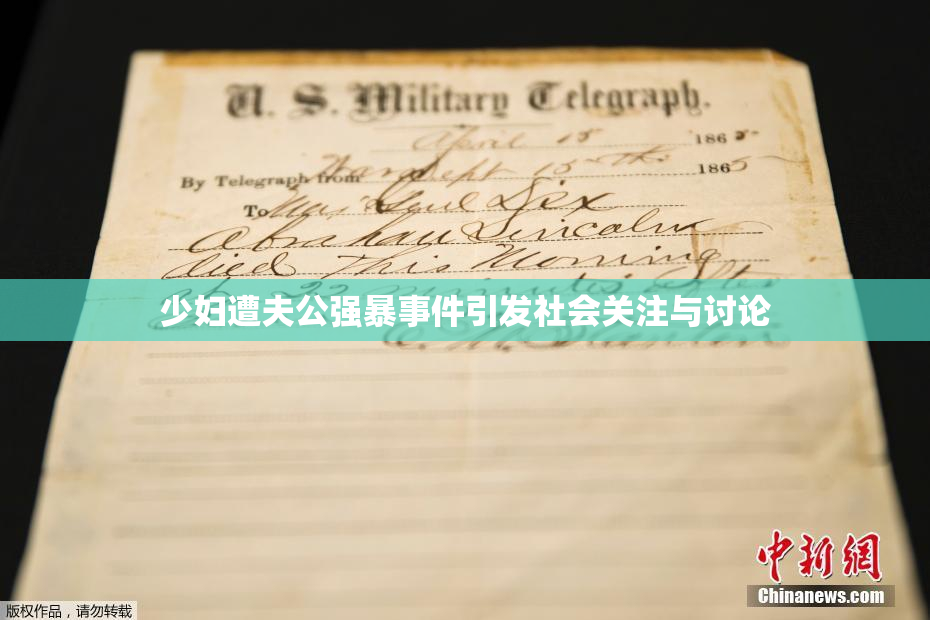 U. S. Military Telegraph.
April 15 1865
By Telegraph from War Dept 15th 1865
To Maj Genl Dix
Abraham Lincoln
died This Morning
at 22 minutes after
少妇遭夫公强暴事件引发社会关注与讨论
E. M. Stanton
中新网
Chinanews.com
版权作品，请勿转载